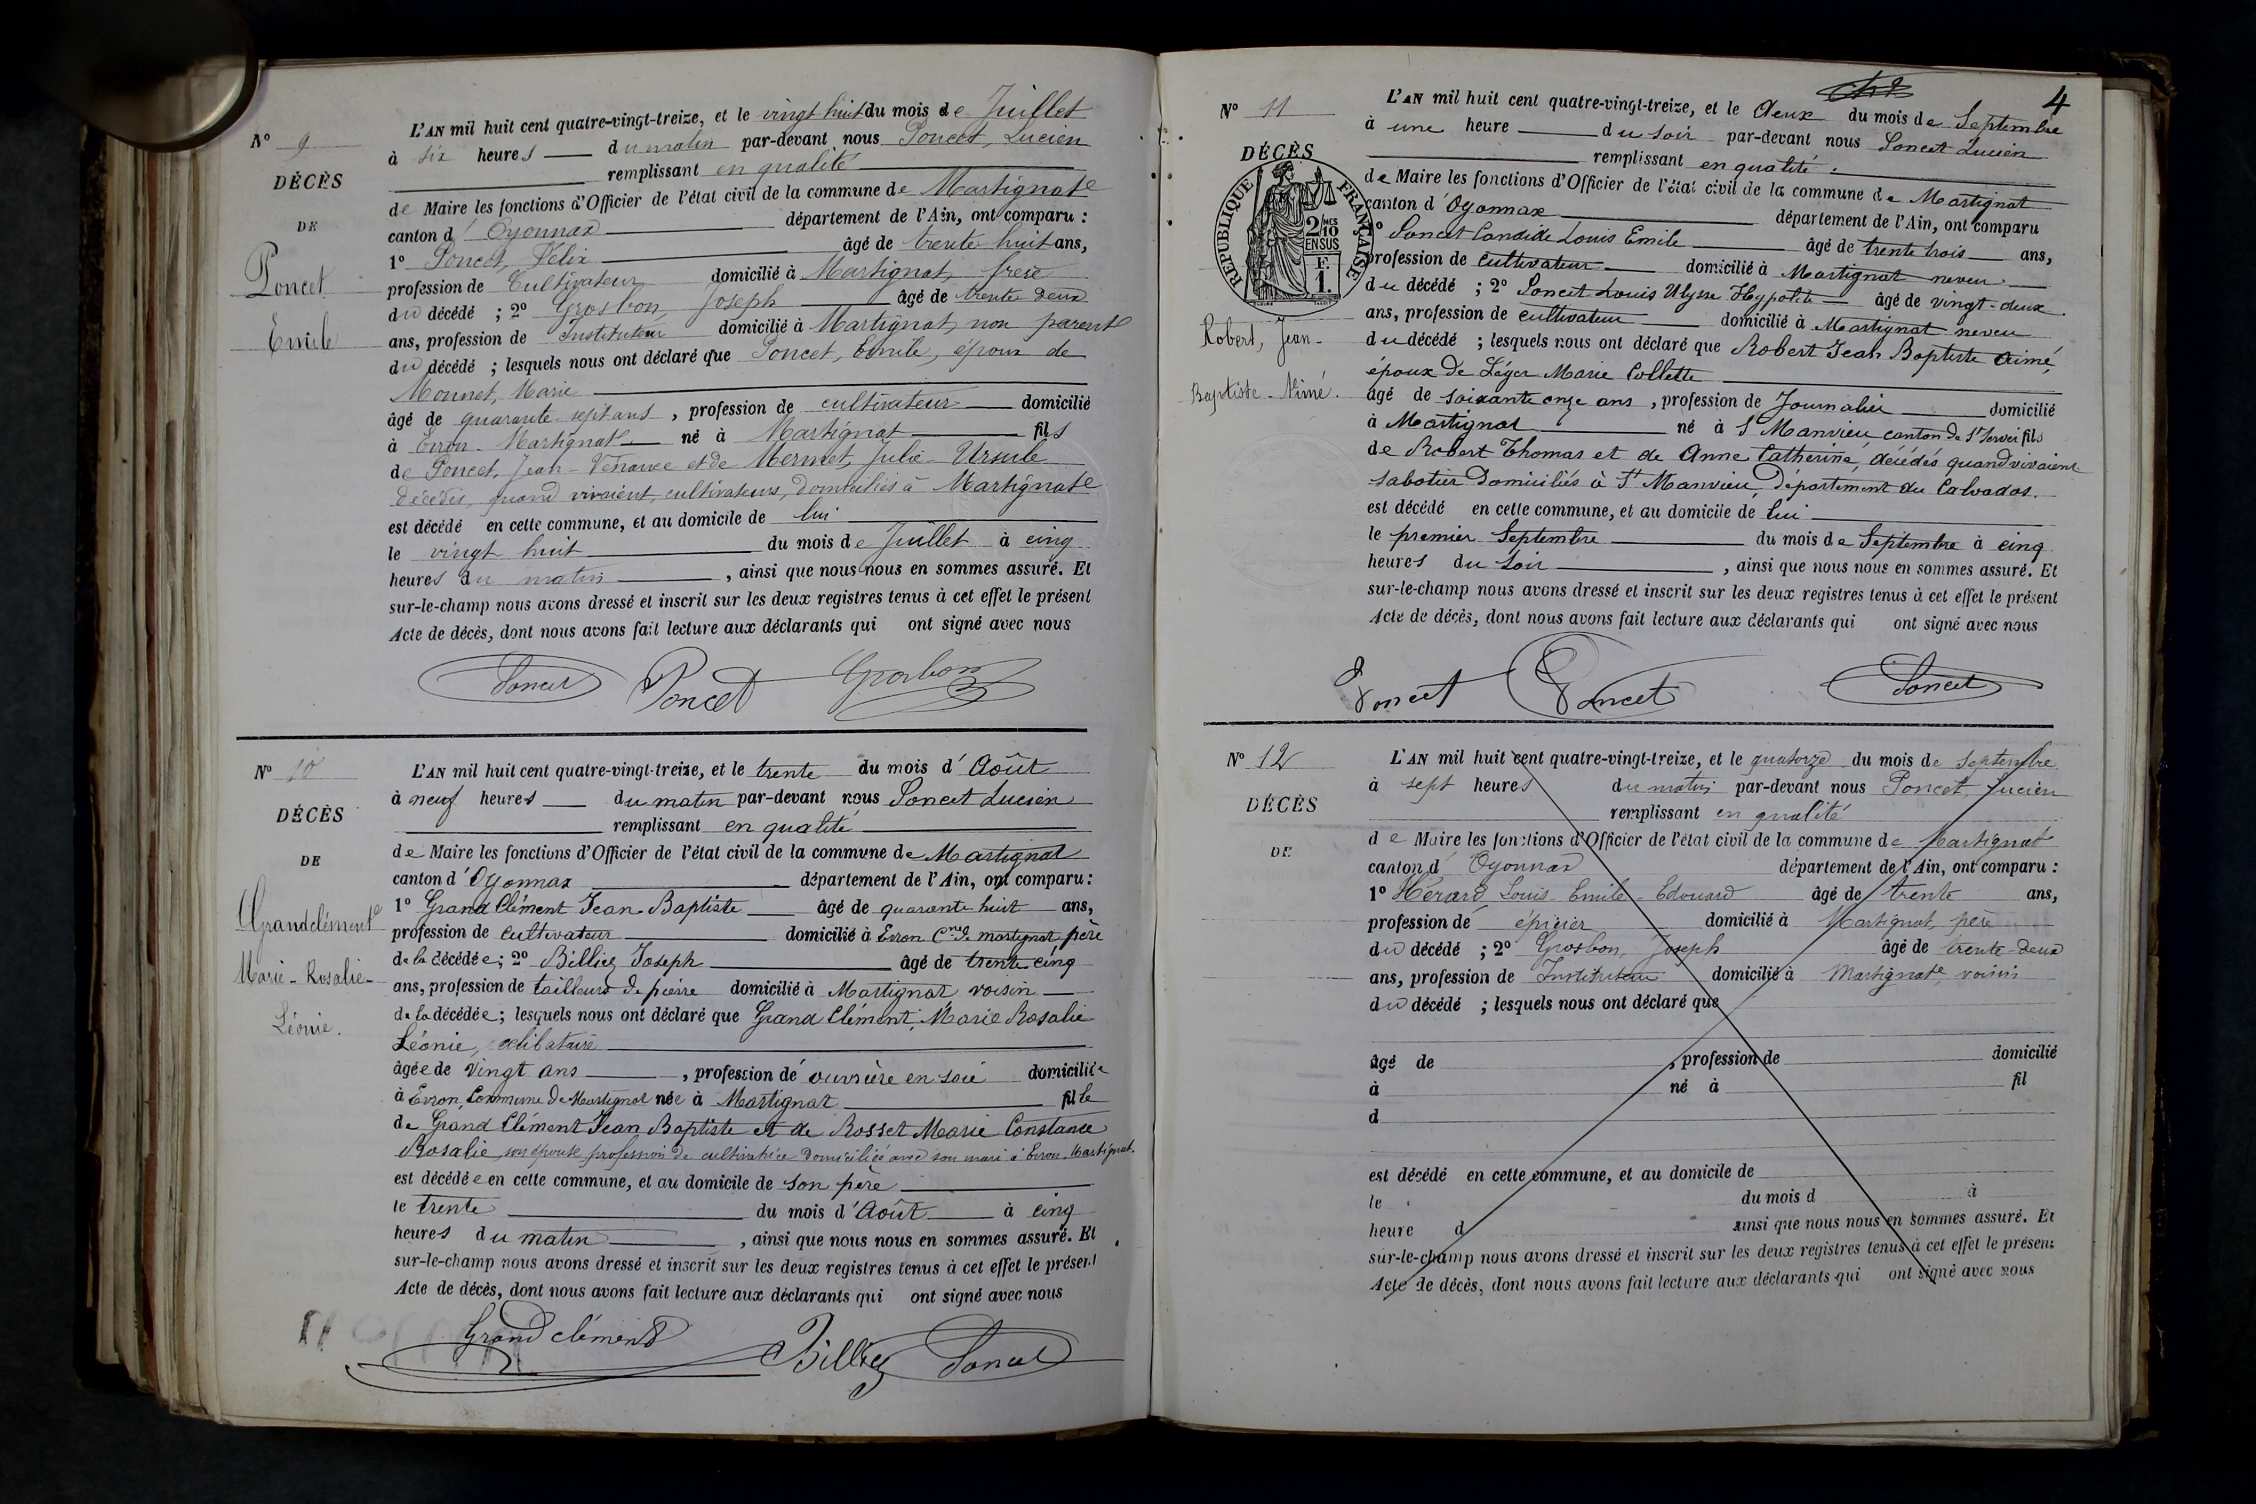 N° 9
DÉCÈS
DE
Poncet
Emile
L'AN mil huit cent quatre-vingt-treize, et le vingt huit du mois de Juillet
à six heures du matin par-devant nous Poncet, Lucien
remplissant en qualité
de Maire les fonctions d'Officier de l'état civil de la commune de Martignat
canton d'Oyonnax département de l'Ain, ont comparu :
1° Poncet, Félix âgé de trente huit ans,
profession de Cultivateur domicilié à Martignat, frère
du décédé ; 2° Grosbon, Joseph âgé de trente deux
ans, profession de Instituteur domicilié à Martignat, non parent
du décédé ; lesquels nous ont déclaré que Poncet, Emile, époux de
Monnet, Marie
âgé de quarante sept ans, profession de cultivateur domicilié
à Evron-Martignat né à Martignat fils
de Poncet, Jean-Venance et de Mermet, Julie-Ursule
décédés, quand vivaient, cultivateurs, domiciliés à Martignat
est décédé en cette commune, et au domicile de lui
le vingt huit du mois de Juillet à cinq
heures du matin, ainsi que nous nous en sommes assuré. Et
sur-le-champ nous avons dressé et inscrit sur les deux registres tenus à cet effet le présent
Acte de décès, dont nous avons fait lecture aux déclarants qui ont signé avec nous
Poncet Poncet Grosbon
N° 10
DÉCÈS
DE
Grandclément
Marie-Rosalie-
Léonie.
L'AN mil huit cent quatre-vingt-treize, et le trente du mois d'Août
à neuf heures du matin par-devant nous Poncet Lucien
remplissant en qualité
de Maire les fonctions d'Officier de l'état civil de la commune de Martignat
canton d'Oyonnax département de l'Ain, ont comparu :
1° Grand Clément Jean-Baptiste âgé de quarante huit ans,
profession de cultivateur domicilié à Evron Cne de martignat père
de la décédée ; 2° Billiez Joseph âgé de trente cinq
ans, profession de tailleurs de pierre domicilié à Martignat voisin
de la décédée ; lesquels nous ont déclaré que Grand Clément, Marie Rosalie
Léonie, célibataire
âgée de vingt ans, profession de ouvrière en soie domiciliée
à Evron, Commune de Martignat née à Martignat fille
de Grand Clément Jean Baptiste et de Rosset Marie Constance
Rosalie son épouse profession de cultivatrice domiciliée avec son mari à Evron-Martignat.
est décédée en cette commune, et au domicile de son père
le trente du mois d'Août à cinq
heures du matin, ainsi que nous nous en sommes assuré. Et
sur-le-champ nous avons dressé et inscrit sur les deux registres tenus à cet effet le présent
Acte de décès, dont nous avons fait lecture aux déclarants qui ont signé avec nous
Grandclément Billiez Poncet
4
N° 11
DÉCÈS
RÉPUBLIQUE FRANÇAISE
2/10 MES
EN SUS
F.
1.
Robert, Jean-
Baptiste-Aimé.
L'AN mil huit cent quatre-vingt-treize, et le deux du mois de Septembre
à une heure du soir par-devant nous Poncet Lucien
remplissant en qualité
de Maire les fonctions d'Officier de l'état civil de la commune de Martignat
canton d'Oyonnax département de l'Ain, ont comparu
1° Poncet Candide Louis Emile âgé de trente trois ans,
profession de cultivateur domicilié à Martignat neveu
du décédé ; 2° Poncet Louis Ulysse Hypolite âgé de vingt-deux
ans, profession de cultivateur domicilié à Martignat neveu
du décédé ; lesquels nous ont déclaré que Robert Jean Baptiste Aimé,
époux de Léger Marie Collette
âgé de soixante onze ans, profession de Journalier domicilié
à Martignat né à St Manvieu canton de St Sever fils
de Robert Thomas et de Anne Catherine, décédés quand vivaient
sabotier domiciliés à St Manvieu, Département du Calvados.
est décédé en cette commune, et au domicile de lui
le premier Septembre du mois de Septembre à cinq
heures du soir, ainsi que nous nous en sommes assuré. Et
sur-le-champ nous avons dressé et inscrit sur les deux registres tenus à cet effet le présent
Acte de décès, dont nous avons fait lecture aux déclarants qui ont signé avec nous
Poncet Poncet Poncet
N° 12
DÉCÈS
DE
L'AN mil huit cent quatre-vingt-treize, et le quatorze du mois de Septembre
à sept heures du matin par-devant nous Poncet, Lucien
remplissant en qualité
de Maire les fonctions d'Officier de l'état civil de la commune de Martignat
canton d'Oyonnax département de l'Ain, ont comparu :
1° Hérard Louis-Emile-Edouard âgé de trente ans,
profession de épicier domicilié à Martignat, père
du décédé ; 2° Grosbon, Joseph âgé de trente-deux
ans, profession de Instituteur domicilié à Martignat, voisin
du décédé ; lesquels nous ont déclaré que
âgé de , profession de domicilié
à né à fil
d
est décédé en cette commune, et au domicile de
le du mois d à
heure d ainsi que nous nous en sommes assuré. Et
sur-le-champ nous avons dressé et inscrit sur les deux registres tenus à cet effet le présent
Acte de décès, dont nous avons fait lecture aux déclarants qui ont signé avec nous